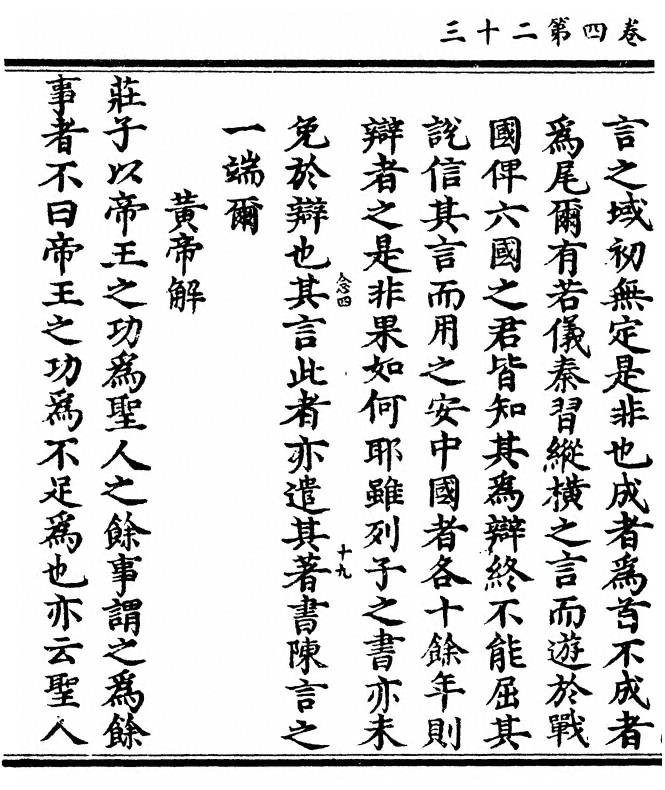 卷四第二十三
言之域初無定是非也成者為首不成者
為尾爾有若儀秦習縱橫之言而遊於戰
國俾六國之君皆知其為辯終不能屈其
說信其言而用之安中國者各十餘年則
辯者之是非果如何耶雖列子之書亦未
念四
十九
免於辯也其言此者亦遣其著書陳言之
一端爾
黃帝解
莊子以帝王之功為聖人之餘事謂之為餘
事者不曰帝王之功為不足為也亦云聖人